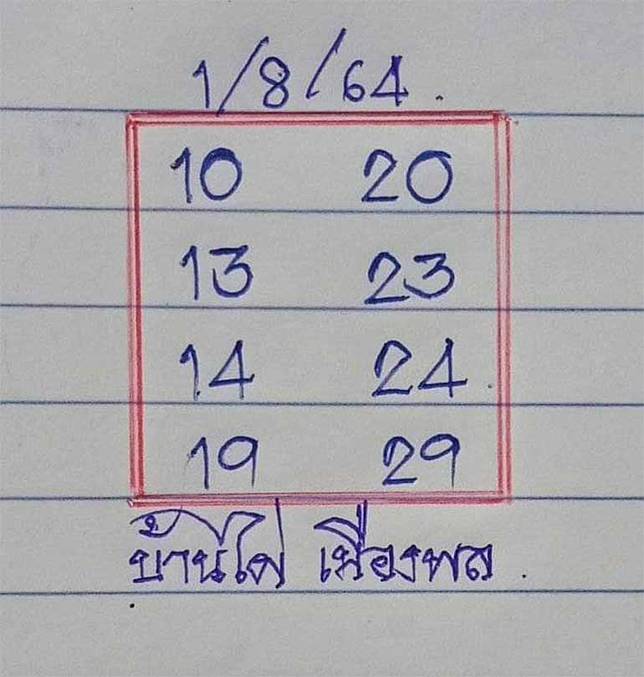 1/8/64.
10 20
13 23
14 24.
19 29
บ้านไผ่ เมืองพล.